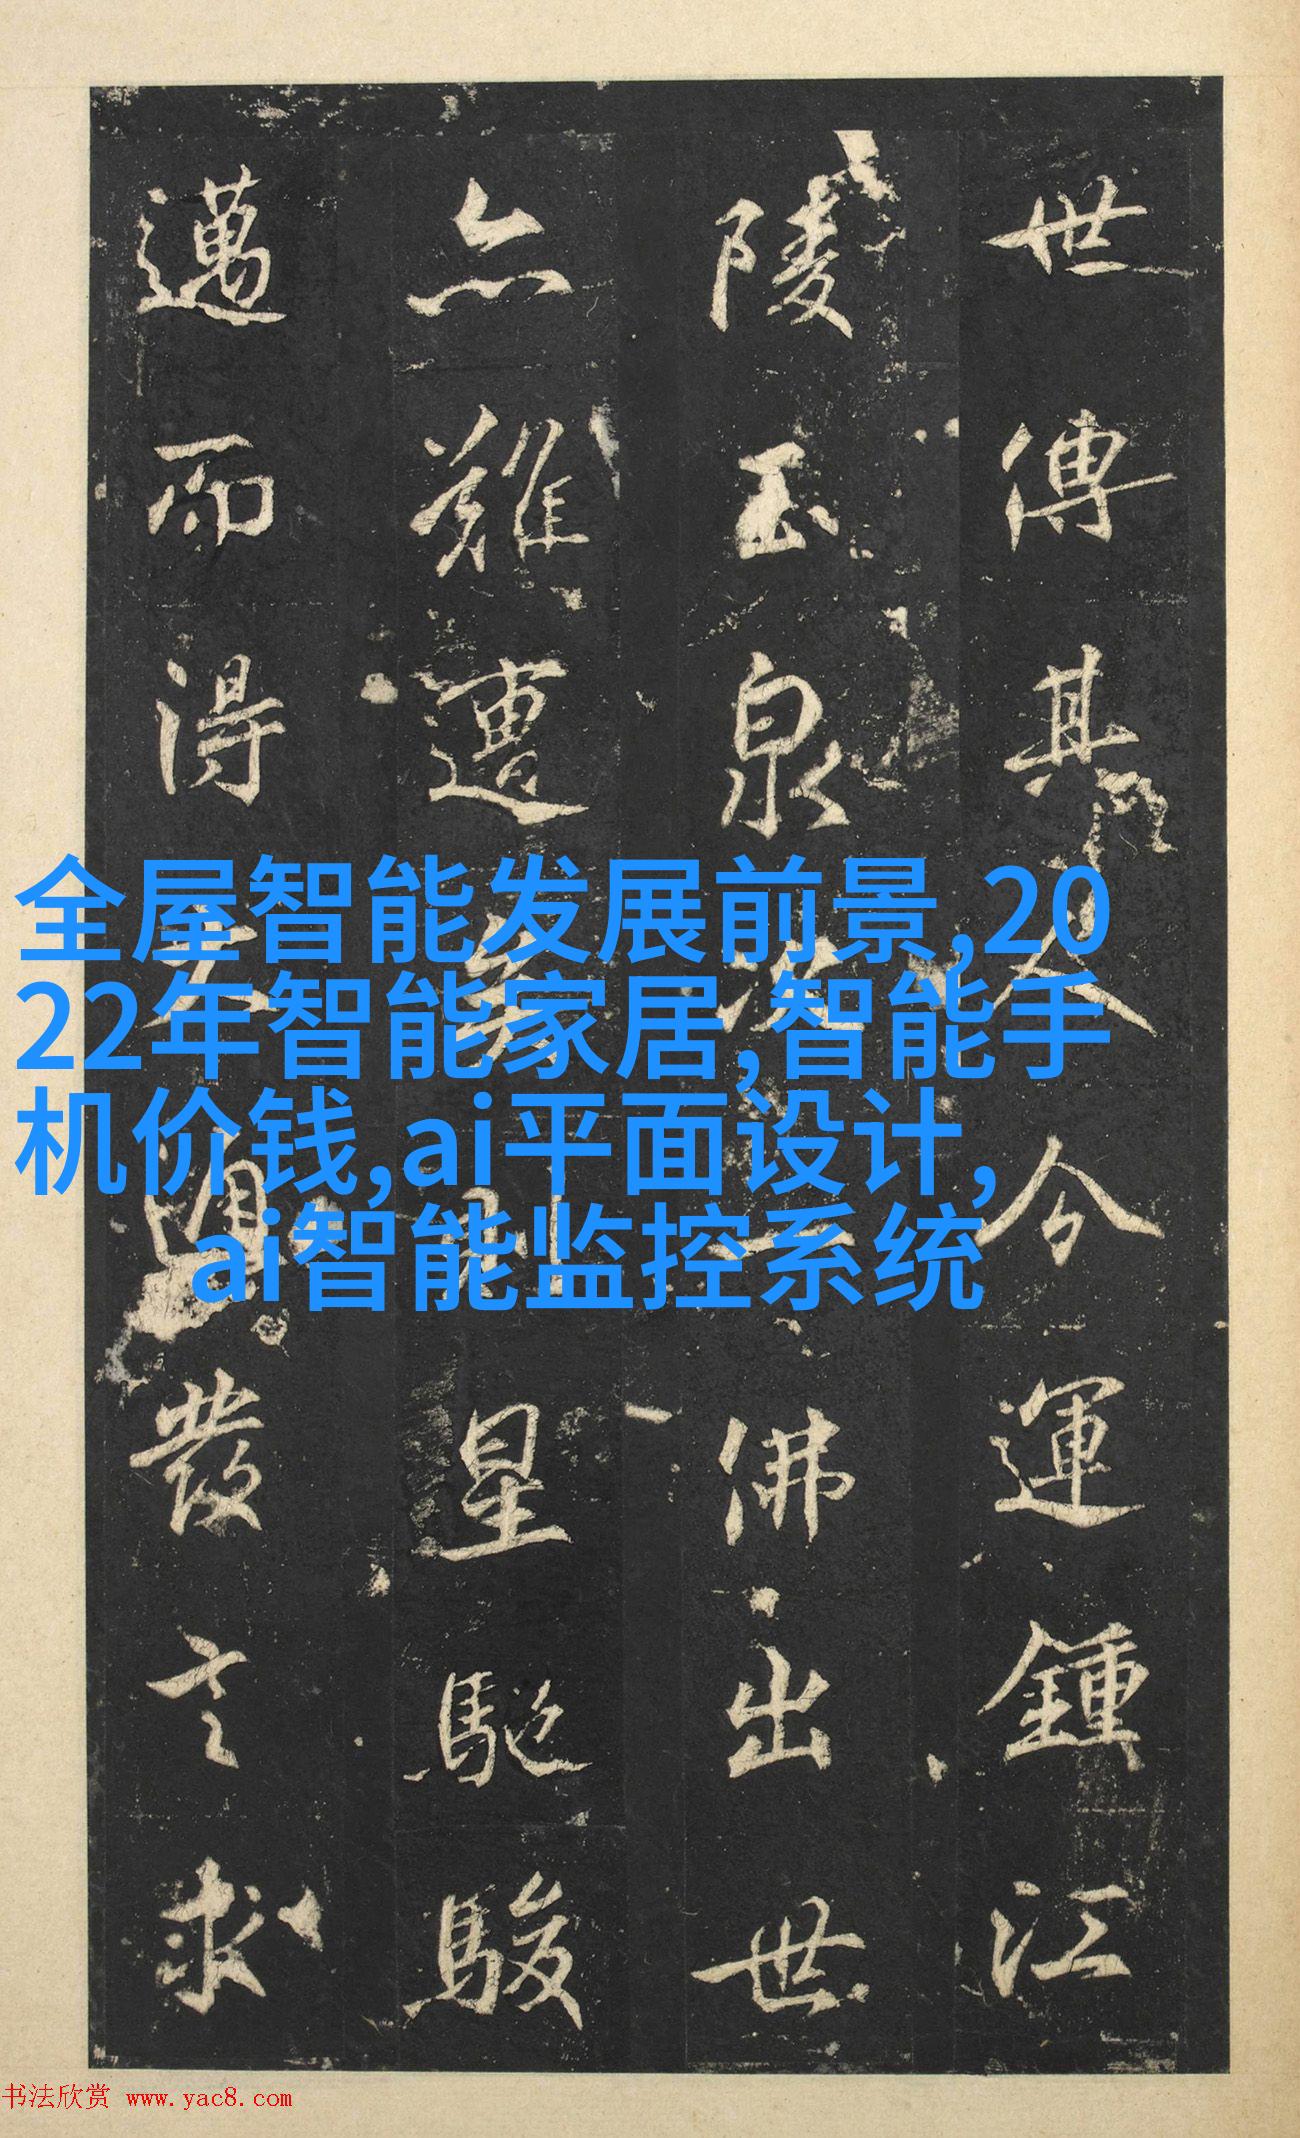 世傳其人今運鍾江
陵玉泉 佛出世
亦難遭 星馳駿
邁而得 發言求
全屋智能发展前景,20
22年智能家居,智能手
机价钱,ai平面设计,
ai智能监控系统
书法欣赏 www.yac8.com